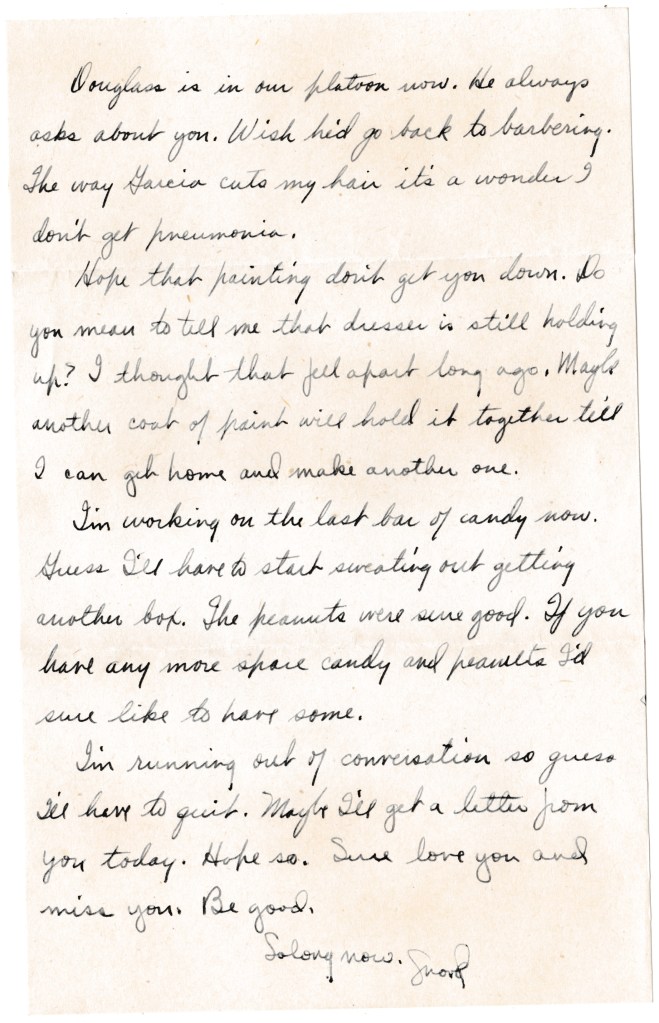 Douglass is in our platoon now. He always
asks about you. Wish he'd go back to barbering.
The way Garcia cuts my hair it's a wonder I
don't get pneumonia.
Hope that painting don't get you down. Do
you mean to tell me that dresser is still holding
up? I thought that fell apart long ago. Maybe
another coat of paint will hold it together till
I can get home and make another one.
I'm working on the last bar of candy now.
Guess I'll have to start sweating out getting
another box. The peanuts were sure good. If you
have any more spare candy and peanuts I'd
sure like to have some.
I'm running out of conversation so guess
I'll have to quit. Maybe I'll get a letter from
you today. Hope so. Sure love you and
miss you. Be good.
So long now.